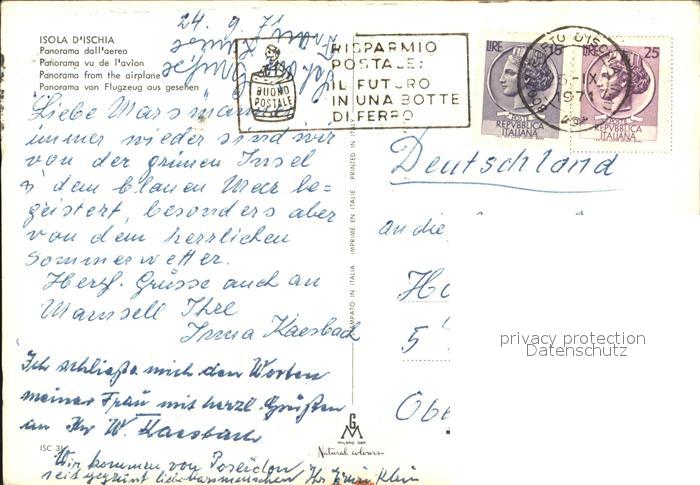 24. 9. 71
ISOLA D'ISCHIA
Panorama dall'aereo
Panorama vu de l'avion
Panorama from the airplane
Panorama von Flugzeug aus gesehen
BUONO
POSTALE
RISPARMIO
POSTALE:
IL FUTURO
IN UNA BOTTE
DI FERRO
LIRE 15
POSTE
REPVBBLICA
ITALIANA
LIRE 25
POSTE
REPVBBLICA
ITALIANA
IX
1971
Liebe
immer wieder sind wir
von der grünen Insel
dem blauen Meer be=
geistert, besonders aber
von dem herrlichen
Sommerwetter.
Herzl. Grüsse auch an
Mamsell Ihre
Irma Kaesbach
Ich schließe mich den Worten
meiner Frau mit herzl. Grüßen
an Ihr W. Kaesbach
Wir kommen von Poseidon
seit gegrüßt Ihr Erwin Klein
STAMPATO IN ITALIA IMPRIMÉ EN ITALIE PRINTED IN
Deutschland
an die
Ho
5
Obe
privacy protection
Datenschutz
ISC 31
GM
MILANO DEP.
Natural colours